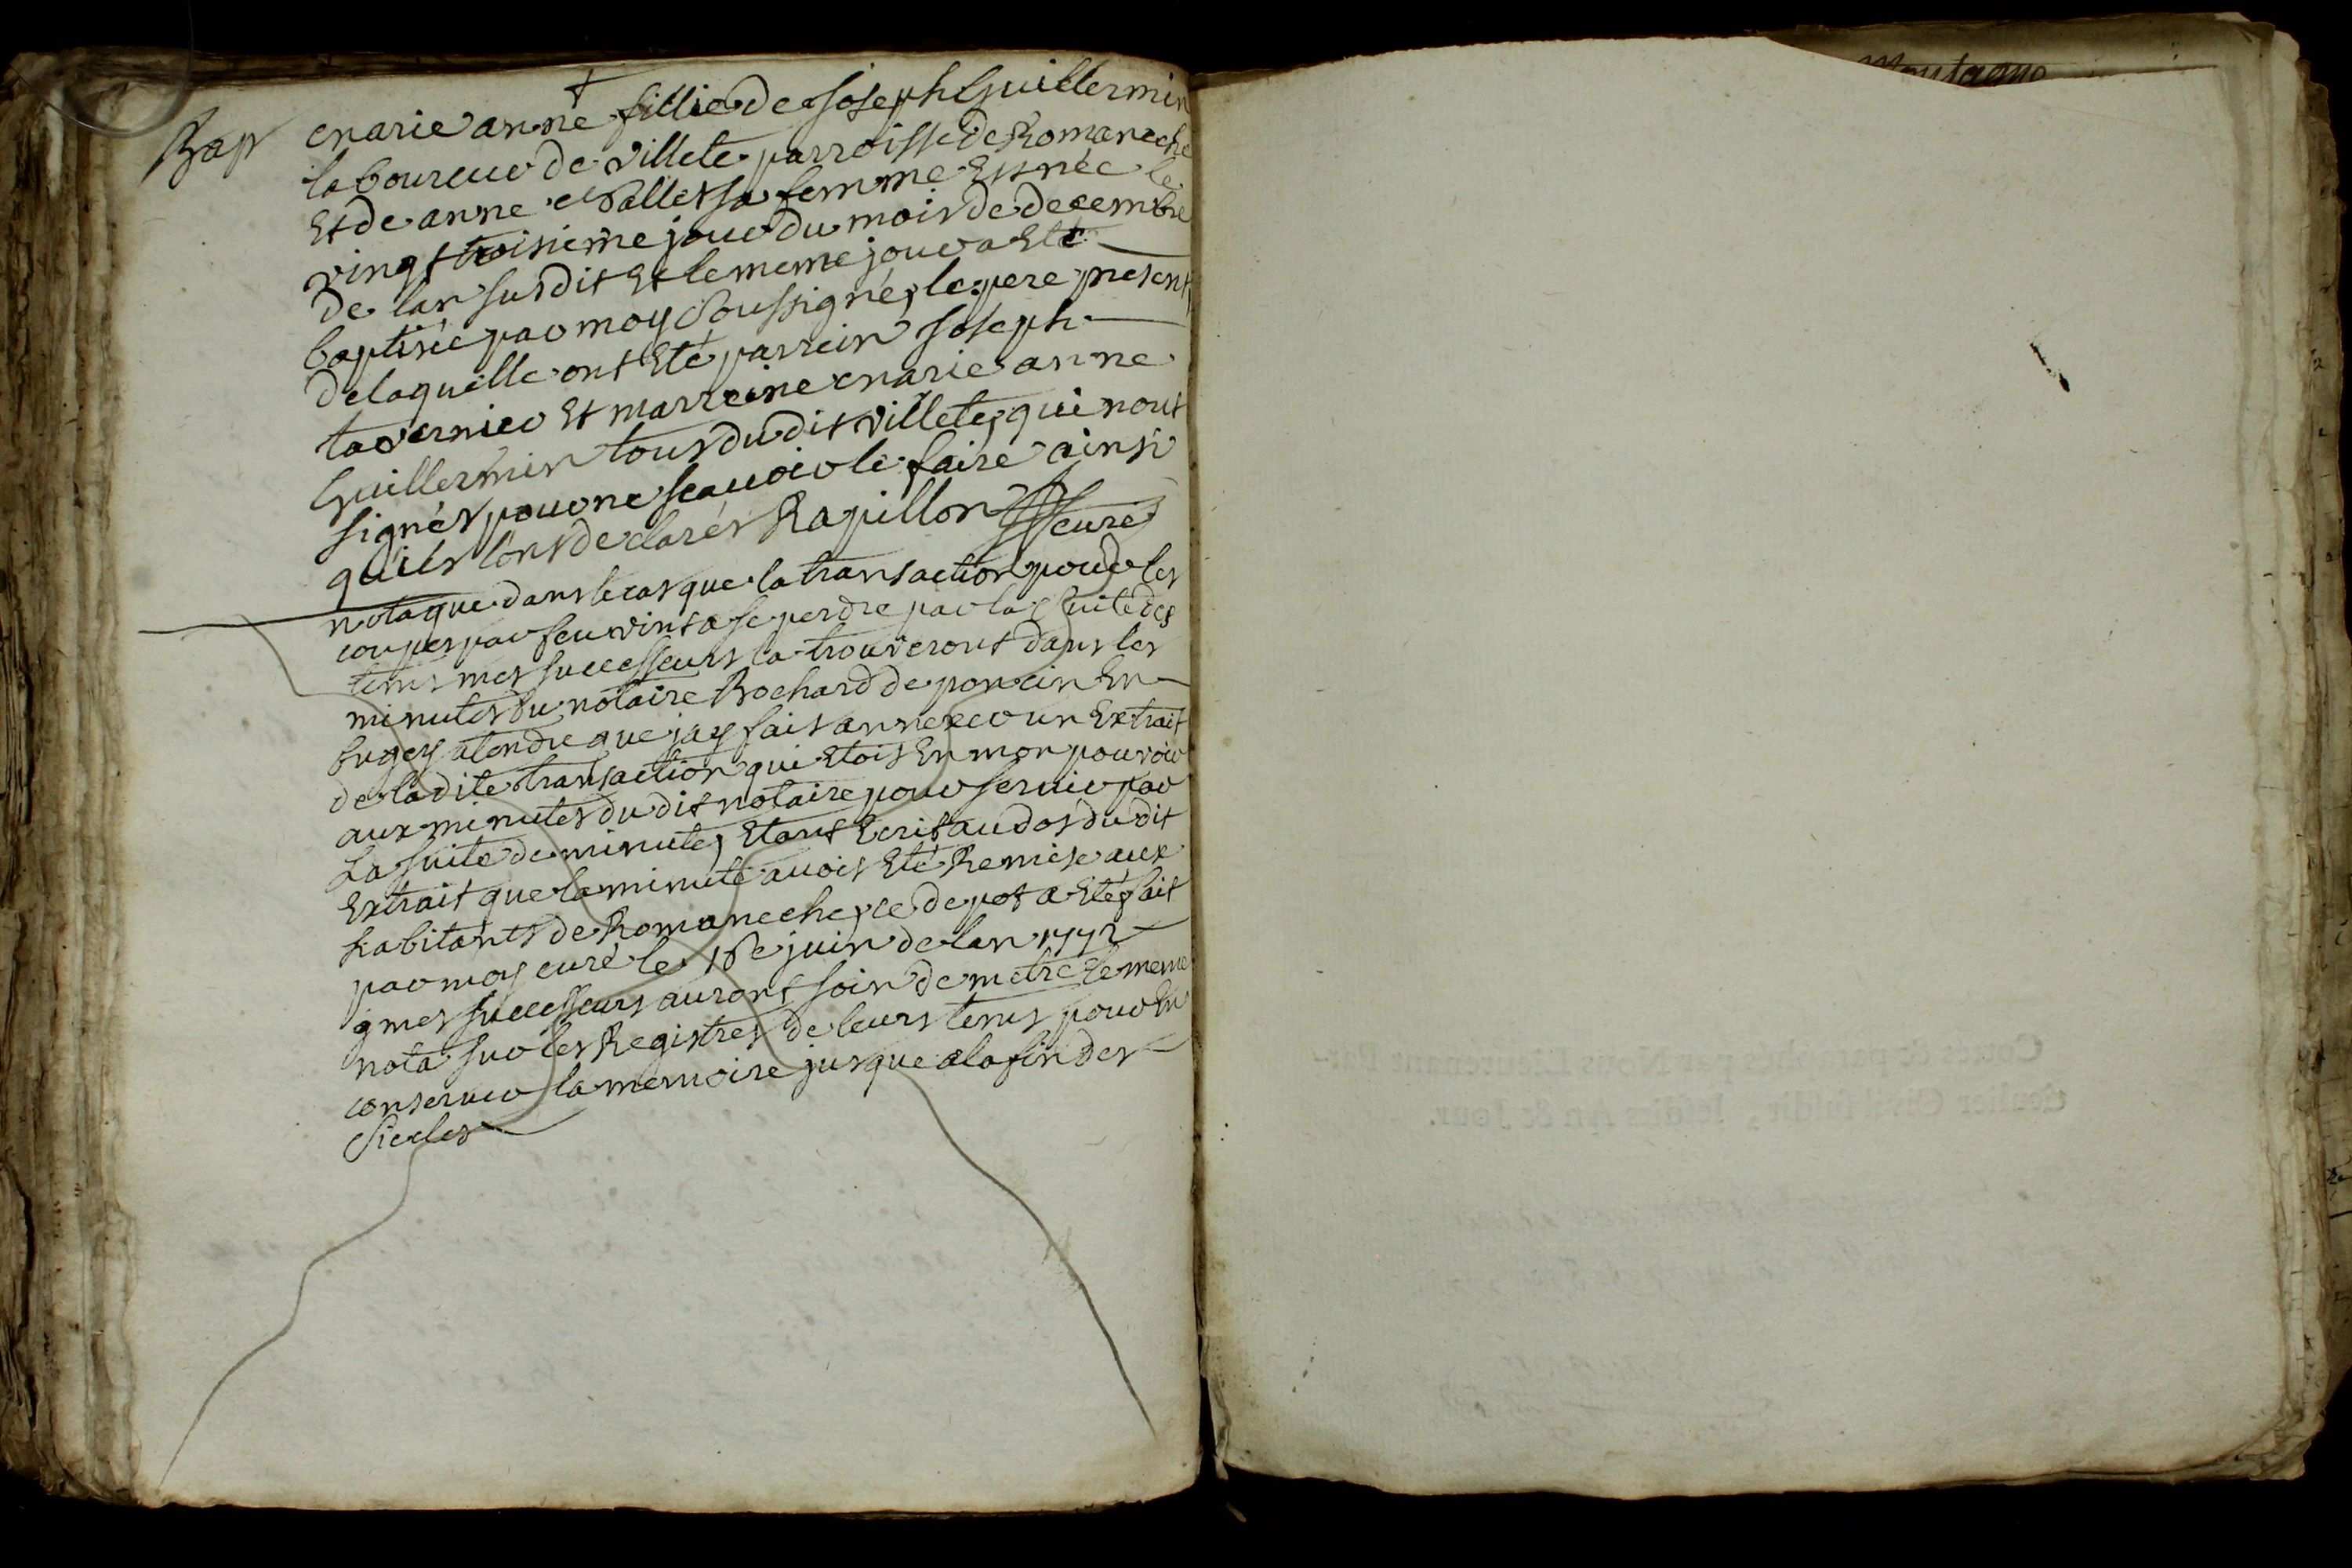 Bap
†
marie anne fillie de joseph Guillermin
laboureur de villete parroisse de Romaneche
Et de anne sa femme Est née le
vingt troisieme jour du mois de decembre
de lan susdit Et le meme jour a Eté
baptisée par moy Soussigné, le pere present
de laquelle ont Eté parrein joseph
tavernier Et marreine marie anne
Guillermin tous du dit villete, qui nont
signés pour ne scauoir le faire ainsi
quils lont declarés Rapillon curé
nota que dans le cas que la transaction pour les
coupes par feu vint a se perdre par la Suite des
tems mes successeurs la trouveront dans les
minutes du notaire Bochard de poncin En
bugey atendu que jay fait annexer un Extrait
de la dite transaction qui Etoit En mon pouvoir
aux minutes du dit notaire pour seruir par
La suite de minute, Etant Ecrit au dos du dit
Extrait que la minute avoit Eté Remise aux
habitants de Romaneche, ce depot a Eté fait
par moy curé le 16e juin de lan 1772
mes successeurs auront soin de metre le meme
nota sur les Registres de leurs tems pour En
conseruer la memoire jusque a la fin des
Siecles
Montagne
Cotté & paraphé par Nous
Civil susdit, lesdits An & Jour.